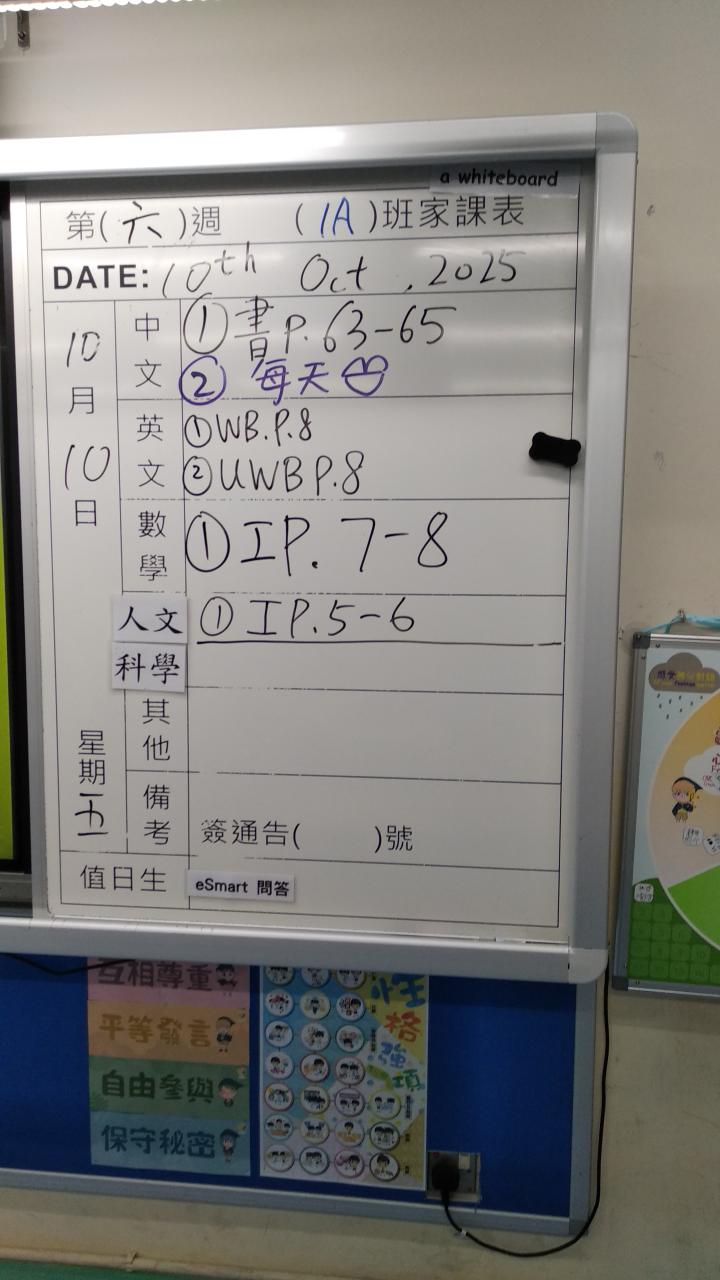 a whiteboard
第(六)週 (1A)班家課表
DATE: 10th Oct, 2025
10月10日
星期五
中文
①書P.63-65
②每天
英文
①WB.P.8
②UWB P.8
數學
①IP.7-8
人文
科學
①IP.5-6
其他
備考
簽通告( )號
值日生
eSmart 問答
互相尊重
平等發言
自由參與
保守秘密
性格強項